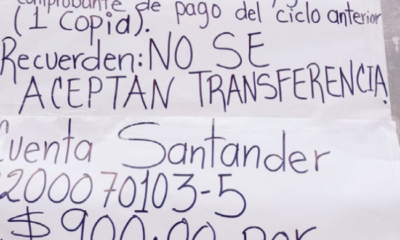 comprobante de pago del ciclo anterior
(1 copia).
Recuerden: NO SE
ACEPTAN TRANSFERENCIA
Cuenta Santander
200070103-5
$900.00 por